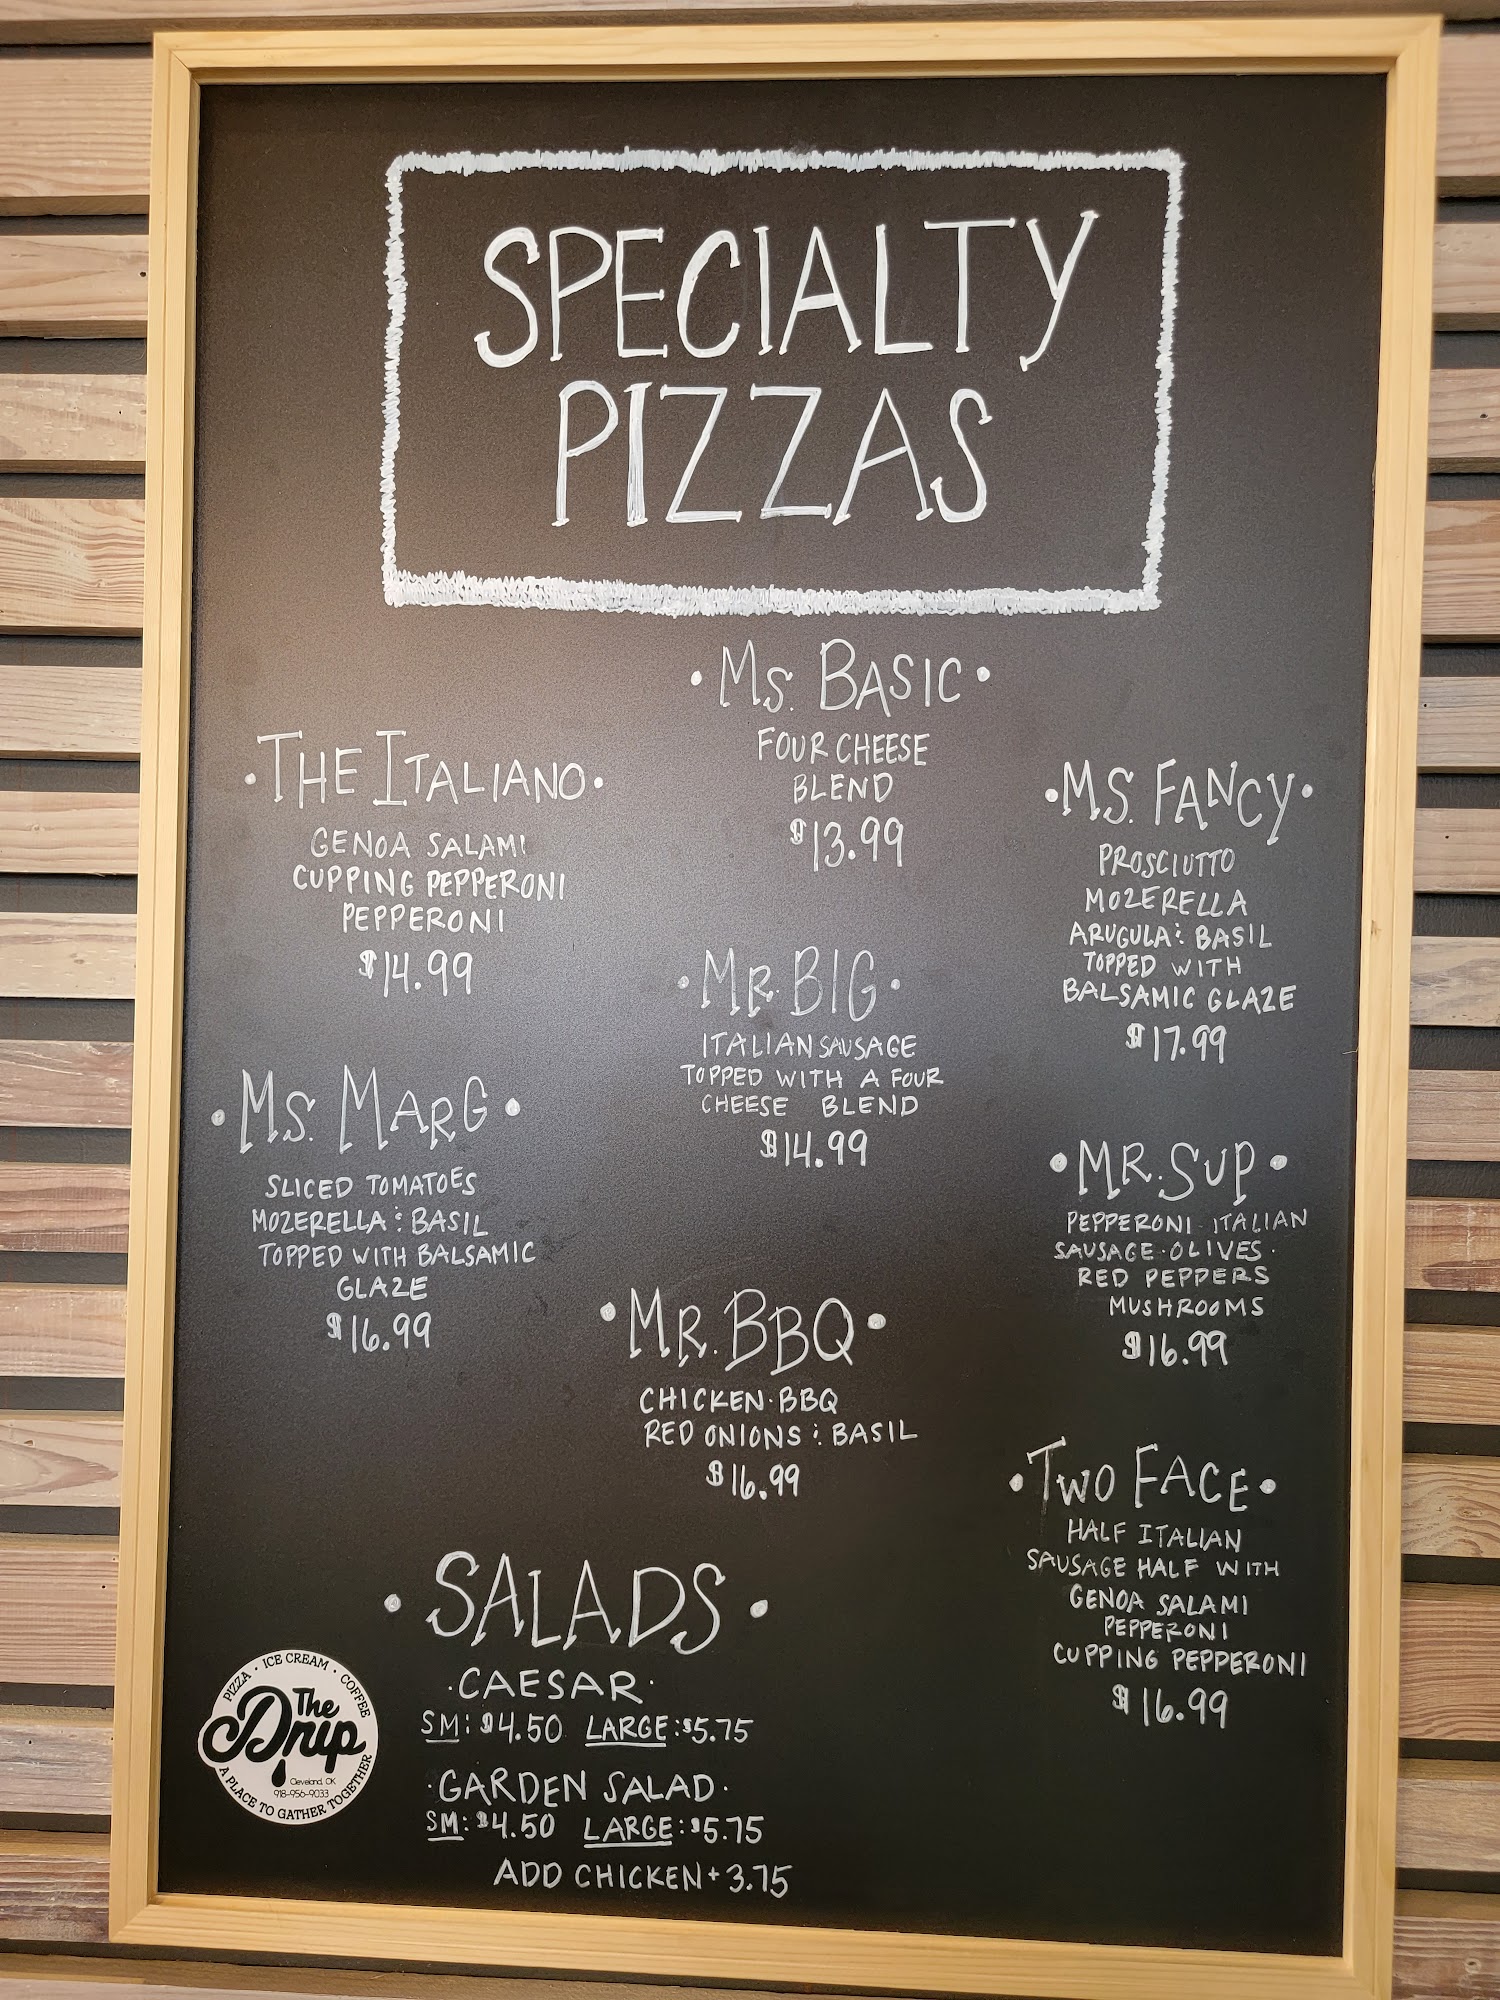 SPECIALTY
PIZZAS
· MS. BASIC ·
FOUR CHEESE
BLEND
$13.99
· THE ITALIANO ·
GENOA SALAMI
CUPPING PEPPERONI
PEPPERONI
$14.99
· MS. FANCY ·
PROSCIUTTO
MOZERELLA
ARUGULA & BASIL
TOPPED WITH
BALSAMIC GLAZE
$17.99
· MR. BIG ·
ITALIAN SAUSAGE
TOPPED WITH A FOUR
CHEESE BLEND
$14.99
· MS. MARG ·
SLICED TOMATOES
MOZERELLA & BASIL
TOPPED WITH BALSAMIC
GLAZE
$16.99
· MR. SUP ·
PEPPERONI · ITALIAN
SAUSAGE · OLIVES ·
RED PEPPERS
MUSHROOMS
$16.99
· MR. BBQ ·
CHICKEN · BBQ
RED ONIONS & BASIL
$16.99
· TWO FACE ·
HALF ITALIAN
SAUSAGE HALF WITH
GENOA SALAMI
PEPPERONI
CUPPING PEPPERONI
$16.99
· SALADS ·
· CAESAR ·
SM: $4.50 LARGE: $5.75
· GARDEN SALAD ·
SM: $4.50 LARGE: $5.75
ADD CHICKEN + 3.75
PIZZA · ICE CREAM · COFFEE
The
Drip
Cleveland, OK
918-956-9033
A PLACE TO GATHER TOGETHER